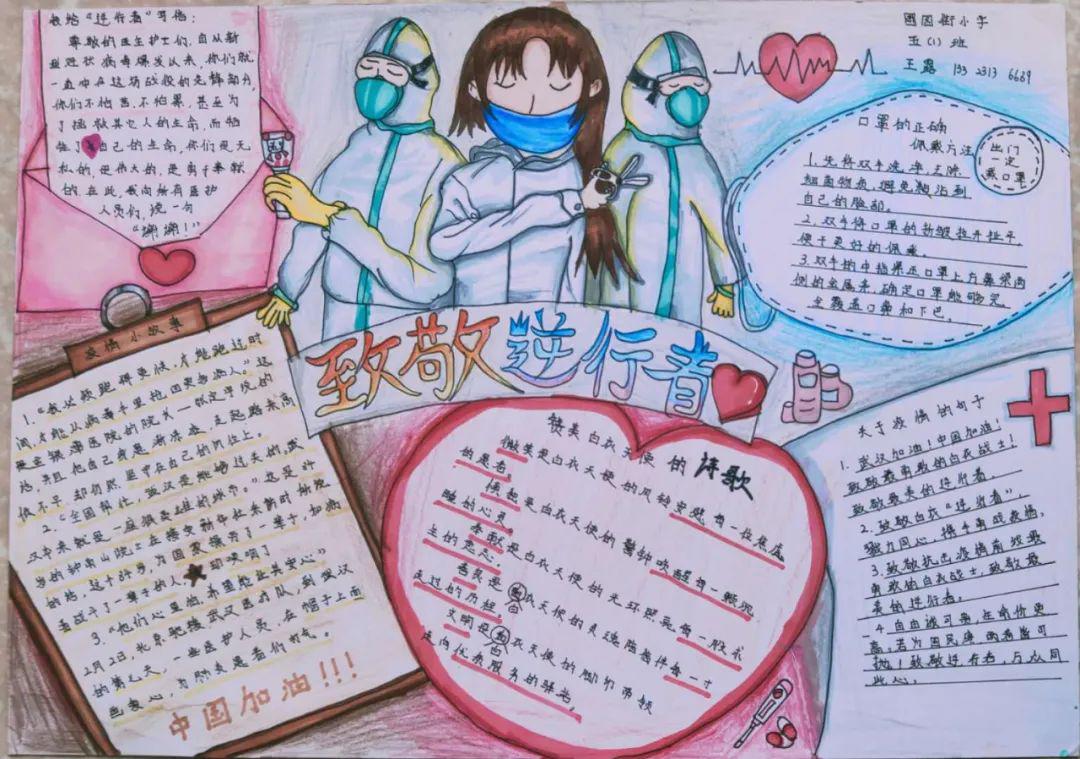 致"逆行者"
尊敬的医生护士们，自从新
冠状病毒爆发以来，你们就
一直冲在这场战役的先锋部分，
你们不怕苦，不怕累，甚至为
了拯救其它人的生命，而牺
牲了自己的生命，你们是无
私的，是伟大的，是勇于奉献
的，在此，我向所有医护
人员们，说一句
"谢谢！"
园街小学
五(1)班
王露
口罩的正确
佩戴方法
出门
一定
戴口罩
1.先将双手洗净，去除
细菌物质，避免黏沾到
自己的脸部。
2.双手将口罩的褶皱拉开拉平，
便于更好的佩戴。
3.双手的中指摁压口罩上方鼻梁两
侧的金属条，确定口罩能够完
全覆盖口鼻和下巴。
致敬逆行者
疫情小故事
1."我必须跑得更快，才能跑过时
间，才能从病毒手里抢回更多病人。"这
是金银潭医院的院长
2."全国帮忙，武汉是能够过关的，武
汉本来就是一座很英雄的城市。"这是
的钟南山院士在接受新华社采访时
3."他们心里怕，希望能让其安心"
2月2日，北京驰援武汉医疗队，到武汉
的第七天，一些医护人员，在帽子上面
画爱心，为肺炎患者们打气。
中国加油！！！
赞美白衣天使的诗歌
微笑是白衣天使的风铃安慰每一位焦虑
的患者。
是白衣天使的警钟唤醒每一颗沉
睡的心灵。
奉献是白衣天使的光环照亮每一股求
生的意志。
是白衣天使的灵魂陪着伴每一寸
走过的历程。
文明是白衣天使的脚印带领
走向优质服务的驿站。
关于疫情的句子
1.武汉加油！中国加油！
致敬最勇敢的白衣战士！
致敬最美的逆行者
2.致敬白衣"逆行者"，
力同心，携手勇战疫情，
3.致敬抗击疫情前线最
勇敢的白衣战士，致敬最
美的逆行者。
4.自由诚可贵，生命价更
高，若为国民康，两者皆可
抛！致敬逆行者，与众同
此心。